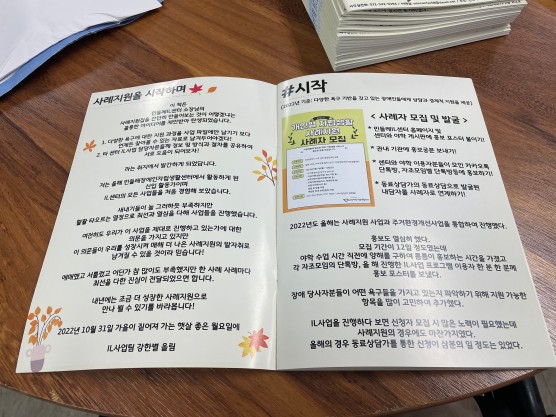 사례지원을 시작하며
이 책은
민들레IL센터 소장님의
사례지원집을 간단히 만들어보는 것이 어떻겠냐는
훌륭한 아이디어를 제안받아 탄생되었습니다.
1. 다양한 욕구에 대한 지원 과정을 사업 파일에만 남기기 보다
언제든 찾아볼 수 있는 자료로 남겨두어야겠다!
2. 타 센터 IL사업 담당자분들께 정보 및 방식과 절차를 공유하여
서로 도움이 되어보자!
라는 취지에서 발간하게 되었답니다.
저는 올해 민들레장애인자립생활센터에서 활동하게 된
신입 활동가이며
IL센터의 모든 사업들을 처음 경험해 보았습니다.
새내기들이 늘 그러하듯 부족하지만
팔팔 타오르는 열정으로 최선과 열심을 다해 사업들을 진행했습니다.
여전히도 우리가 이 사업을 제대로 진행하고 있는가에 대한
의문을 가지고 있지만
이 의문들이 우리를 성장시키며 매해 더 나은 사례지원의 발자취로
남겨질 수 있을 것이라 믿습니다!
애매했고 서툴렀고 어딘가 참 많이도 부족했지만 한 사례 사례마다
최선을 다한 진심이 전달되었으면 합니다.
내년에는 조금 더 성장한 사례지원으로
만나 뵐 수 있기를 바라봅니다!
2022년 10월 31일 가을이 짙어져 가는 햇살 좋은 월요일에
IL사업팀 강한별 올림
#시작
(2022년 기준: 다양한 욕구 기반을 갖고 있는 장애인들에게 상담과 경제적 지원을 제공)
개인별 자립생활
사례지원
사례자 모집
< 사례자 모집 및 발굴 >
* 민들레IL센터 홈페이지 및
센터와 야학 게시판에 홍보 포스터 붙이기!
* 관내 기관에 홍보공문 보내기!
* 센터와 야학 이용자들이 모인 카카오톡
단톡방, 자조모임별 단톡방등에 홍보하기!
* 동료상담가의 동료상담으로 발굴된
내담자를 사례자로 연계하기!
2022년도 올해는 사례지원 사업과 주거환경개선사업을 통합하여 진행했다.
홍보도 열심히 했다.
모집 기간이 꽤나 정도였는데
야학 수업 시간 직전에 양해를 구하여 틈틈이 홍보하는 시간을 가졌고
각 자조모임의 단톡방, 올 해 진행한 IL사업 프로그램 이용자 한 분 한 분께
홍보 포스터를 보냈다.
장애 당사자분들이 어떤 욕구들을 가지고 있는지 파악하기 위해 지원 가능한
항목을 많이 고민하여 추가했다.
IL사업을 진행하다 보면 신청자 모집 시 많은 노력이 필요했는데
사례지원의 경우에도 마찬가지였다.
올해의 경우 동료상담가를 통한 신청이 삼분의 일 정도는 있었다.